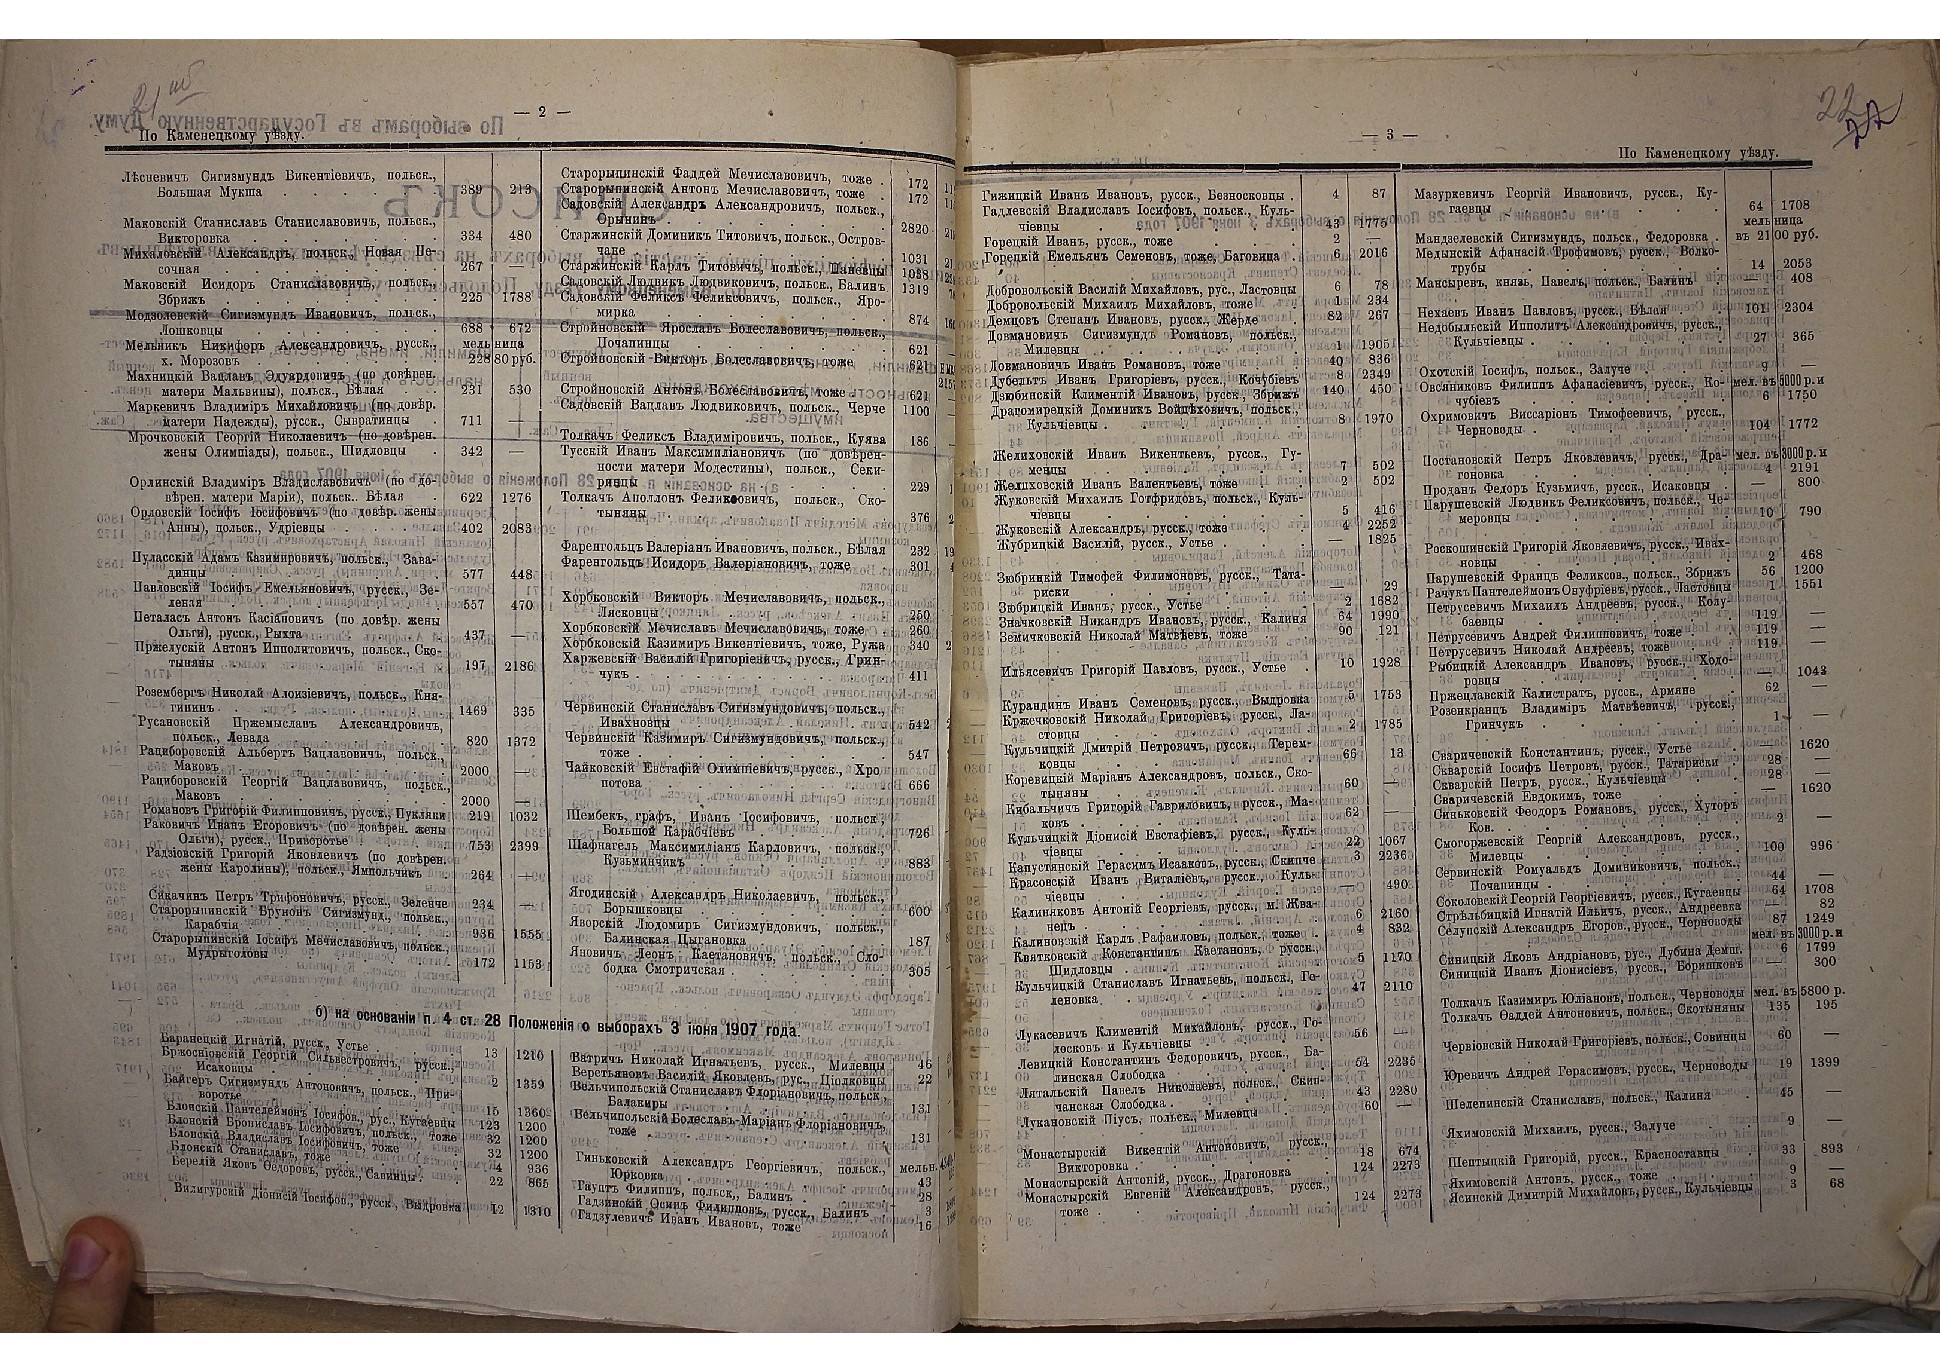 — 2 —
По Каменецкому уѣзду.
Лѣсневичъ Сигизмундъ Викентіевичъ, польск.,
Большая Мукша . . . 389 213
Маковскій Станиславъ Станиславовичъ, польск.,
Викторовка . . . 334 480
Михаловскій Александръ, польск., Новая Пе-
сочная . . . 267 —
Маковскій Исидоръ Станиславовичъ, польск.,
Збрижъ . . . 225 1788
Модзолевскій Сигизмундъ Ивановичъ, польск.,
Лошковцы . . . 688 672
Мельникъ Никифоръ Александровичъ, русск.,
мельница
х. Морозовъ 22880 руб.
Махницкій Вацлавъ Эдуардовичъ (по довѣрен.
матери Мальвины), польск., Бѣлая . 231 530
Маркевичъ Владиміръ Михайловичъ (по довѣр.
матери Надежды), русск., Сывратинцы . 711 —
Мрочковскій Георгій Николаевичъ (по довѣрен.
жены Олимпіады), польск., Шидловцы . 342 —
Орлинскій Владиміръ Владиславовичъ (по до-
вѣрен. матери Маріи), польск.. Бѣлая . 622 1276
Орловскій Іосифъ Іосифовичъ (по довѣр. жены
Анны), польск., Удріевцы . . . 402 2083
Пуласскій Адамъ Казимировичъ, польск., Зава-
динцы . . . 577 448
Павловскій Іосифъ Емельяновичъ, русск., Зе-
леная . . . 557 470
Петаласъ Антонъ Касіановичъ (по довѣр. жены
Ольги), русск., Рыхта . . . 437 —
Пржелускій Антонъ Ипполитовичъ, польск., Ско-
тыняны . . . 197 2186
Розембергъ Николай Алоизіевичъ, польск., Кня-
гининъ . . . 1469 335
Русановскій Пржемыславъ Александровичъ,
польск., Левада . . . 820 1372
Рациборовскій Альбертъ Вацлавовичъ, польск.,
Маковъ . . . 2000 —
Рациборовскій Георгій Вацлавовичъ, польск.,
Маковъ . . . 2000 —
Романовъ Григорій Филипповичъ, русск., Пукляки 219 1032
Раковичъ Иванъ Егоровичъ (по довѣрен. жены
Ольги), русск., Приворотье . . . 753 2399
Радзіовскій Григорій Яковлевичъ (по довѣрен.
жены Каролины), польск., Ямпольчикъ . 264 —
Сикачинъ Петръ Трифоновичъ, русск., Зеленче 234 —
Старорыпинскій Брунонъ Сигизмунд., польск.,
Карабчія . . . 936 1555
Старорыпинскій Іосифъ Мечиславовичъ, польск.,
Мудрыголовы . . . 172 1153
Старорыпинскій Фаддей Мечиславовичъ, тоже . 172
Старорыпинскій Антонъ Мечиславовичъ, тоже . 172
Садовскій Александръ Александровичъ, польск.,
Орынинъ . . . 2820
Старжинскій Доминикъ Титовичъ, польск., Остров-
чане . . . 1031
Старжинскій Карлъ Титовичъ, польск., Цаневцы 1038
Садовскій Людвикъ Людвиковичъ, польск., Балинъ 1319
Садовскій Феликсъ Феликсовичъ, польск., Яро-
мирка . . . 874
Стройновскій Ярославъ Болеславовичъ, польск.,
Почапинцы . . . 621
Стройновскій Викторъ Болеславовичъ, тоже . 621
Стройновскій Антонъ Болеславовичъ, тоже . 621
Садовскій Вацлавъ Людвиковичъ, польск., Черче 1100
Толкачъ Феликсъ Владиміровичъ, польск., Куява 186
Тусскій Иванъ Максимиліановичъ (по довѣрен-
ности матери Модестины), польск., Секи-
рянцы . . . 229
Толкачъ Аполлонъ Феликсовичъ, польск., Ско-
тыняны . . . 376
Фаренгольцъ Валеріанъ Ивановичъ, польск., Бѣлая 232
Фаренгольцъ Исидоръ Валеріановичъ, тоже . 301
Хорбковскій Викторъ Мечиславовичъ, польск.,
Лясковцы . . . 250
Хорбковскій Мечиславъ Мечиславовичъ, тоже 260
Хорбковскій Казимиръ Викентіевичъ, тоже, Ружа 340
Харжевскій Василій Григоріевичъ, русск., Грин-
чукъ . . . 411
Червинскій Станиславъ Сигизмундовичъ, польск.,
Ивахновцы . . . 542
Червинскій Казимиръ Сигизмундовичъ, польск.,
тоже . . . 547
Чайковскій Евстафій Олимпіевичъ, русск., Хро
потова . . . 666
Шембекъ, графъ, Иванъ Іосифовичъ, польск.,
Большой Карабчіевъ . . . 726
Шафнагель Максимиліанъ Карловичъ, польск.,
Кузьминчикъ . . . 883
Ягодинскій Александръ Николаевичъ, польск.,
Борышковцы . . . 600
Яворскій Людомиръ Сигизмундовичъ, польск.,
Балинская Цыгановка . . . 187
Яновичъ Леонъ Каетановичъ, польск., Сло-
бодка Смотричская . . . 305
б) на основаніи п. 4 ст. 28 Положенія о выборахъ 3 іюня 1907 года.
Баранецкій Игнатій, русск., Устье . . 13 1210
Бржоснiовскій Георгій Сильвестровичъ, русск.,
Исаковцы . . . 2 1359
Байгеръ Сигизмундъ Антоновичъ, польск., При-
воротье . . . 15 1360
Блонскій Пантелеймонъ Іосифов., рус., Кугаевцы 123 1200
Блонскій Брониславъ Іосифовичъ, польск., тоже 32 1200
Блонскій Владиславъ Іосифовичъ, тоже . 32 1200
Блонскій Станиславъ, тоже . . . 4 936
Берелій Яковъ Ѳедоровъ, русск., Савинцы . 22 865
Вилигурскій Діонисій Іосифов., русск., Выдровка 12 1310
Ватричъ Николай Игнатьевъ, русск., Милевцы 46
Верстьяновъ Василій Яковлевъ, рус., Ціолковцы 22
Вельчипольскій Станиславъ Флоріановичъ, польск.,
Балакиры . . . 131
Вельчипольскій Болеславъ-Маріанъ Флоріановичъ,
тоже . . . 131
Гиньковскій Александръ Георгіевичъ, польск., мельн.
Юрковка . . . 43
Гауптъ Филиппъ, польск., Балинъ . . 28
Гадзинскій Осипъ Филипповъ, русск., Балинъ . 3
Гадзулевичъ Иванъ Ивановъ, тоже . 16
— 3 —
По Каменецкому уѣзду.
Гижицкій Иванъ Ивановъ, русск., Безносковцы . 4 87
Гадлевскій Владиславъ Іосифовъ, польск., Куль-
чіевцы . . . 43 1775
Горецкій Иванъ, русск., тоже . . . 2 —
Горецкій Емельянъ Семеновъ, тоже, Баговица . 6 2016
Добровольскій Василій Михайловъ, рус., Ластовцы 6 78
Добровольскій Михаилъ Михайловъ, тоже . 1 234
Демцовъ Степанъ Ивановъ, русск., Жерде . 82 267
Довмановичъ Сигизмундъ Романовъ, польск.,
Милевцы . . . 1 1905
Довмановичъ Иванъ Романовъ, тоже . 40 836
Дубельтъ Иванъ Григорьевъ, русск., Кочубіевъ 8 2349
Дзюбинскій Климентій Ивановъ, русск., Збрижъ 140 450
Драгомирецкій Доминикъ Войцѣховичъ, польск.,
Кульчіевцы . . . 8 1970
Желиховскій Иванъ Викентьевъ, русск., Гу-
менцы . . . 7 502
Желиховскій Иванъ Валентьевъ, тоже . 2 502
Жуковскій Михаилъ Готфридовъ, польск., Куль-
чіевцы . . . 5 416
Жуковскій Александръ, русск., тоже . 4 2252
Жубрицкій Василій, русск., Устье . . — 1825
Зюбринкій Тимофей Филимоновъ, русск., Тата-
риски . . . — 29
Зюбрицкій Иванъ, русск., Устье . . 2 1682
Значковскій Никандръ Ивановъ, русск., Калиня 64 1990
Земичковскій Николай Матвѣевъ, тоже . 90 121
Ильясевичъ Григорій Павловъ, русск., Устье . 10 1928
Курандинъ Иванъ Семеновъ, русск., Выдровка 5 1753
Кржечковскій Николай Григоріевъ, русск., Ла-
стовцы . . . 2 1785
Кульчицкій Дмитрій Петровичъ, русск., Терем-
ковцы . . . 66 13
Коревицкій Маріанъ Александровъ, польск., Ско-
тыняны . . . 60 —
Кибальчичъ Григорій Гавриловичъ, русск., Ма-
ковъ . . . 62 —
Кульчицкій Діонисій Евстафіевъ, русск., Куль-
чіевцы . . . 22 1067
Капустянскій Герасимъ Исааковъ, русск., Скипче 3 2236
Красовскій Иванъ Виталіевъ, русск., Куль-
чіевцы . . . — 490
Калиняковъ Антоній Георгіевъ, русск., м. Жва-
нецъ . . . 6 2160
Калиновскій Карлъ Рафаиловъ, польск., тоже . 4 832
Квятковскій Константинъ Каетановъ, русск.,
Шидловцы . . . 5 1170
Кульчицкій Станиславъ Игнатьевъ, польск., Го-
леновка . . . 47 2110
Лукасевичъ Климентій Михайловъ, русск., Го-
лосковъ и Кульчіевцы . . . 56 —
Левицкій Константинъ Федоровичъ, русск., Ба-
линская Слободка . . . 54 2235
Лятальскій Павелъ Николаевъ, польск., Скип-
чанская Слободка . . . 43 2280
Лукановскій Піусъ, польск., Милевцы . 60 —
Монастырскій Викентій Антоновичъ, русск.,
Викторовка . . . 18 674
Монастырскій Антоній, русск., Драгановка . 124 2273
Монастырскій Евгеній Александровъ, русск.,
тоже . . . 124 2273
Мазуркевичъ Георгій Ивановичъ, русск., Ку-
гаевцы . . . 64 1708
мельница
Мандзелевскій Сигизмундъ, польск., Федоровка . въ 2100 руб.
Медынскій Афанасій Трофимовъ, русск., Волко-
трубы . . . 14 2053
Мансыревъ, князь, Павелъ, польск., Балинъ . — 408
Нехаевъ Иванъ Павловъ, русск., Бѣлая . 101 2304
Недобыльскій Ипполитъ Александровичъ, русск.,
Кульчіевцы . . . 27 365
Охотскій Іосифъ, польск., Залуче . . 9 —
Овсяниковъ Филиппъ Афанасіевичъ, русск., Ко- мел. въ 5000 р. и
чубіевъ . . . 6 1750
Охримовичъ Виссаріонъ Тимофеевичъ, русск.,
Черноводы . . . 104 1772
Постановскій Петръ Яковлевичъ, русск., Дра- мел. въ 3000 р. и
гоновка . . . 4 2191
Проданъ Федоръ Кузьмичъ, русск., Исаковцы . — 800
Парушевскій Людвикъ Феликсовичъ, польск., Че-
меровцы . . . 10 790
Роскошинскій Григорій Яковлевичъ, русск., Ивах-
новцы . . . 2 468
Парушевскій Францъ Феликсов., польск., Збрижъ 56 1200
Рачукъ Пантелеймонъ Онуфріевъ, русск., Ластовцы 1 1551
Петрусевичъ Михаилъ Андреевъ, русск., Колу-
баевцы . . . 119 —
Петрусевичъ Андрей Филипповичъ, тоже . 119 —
Петрусевичъ Николай Андреевъ, тоже . 119 —
Рыбицкій Александръ Ивановъ, русск., Ходо-
ровцы . . . — 1043
Пржецлавскій Калистратъ, русск., Армяне . 62 —
Розенкранцъ Владиміръ Матвѣевичъ, русск.,
Гринчукъ . . . 1 —
Сваричевскій Константинъ, русск., Устье . — 1620
Скварскій Іосифъ Петровъ, русск., Татариски . 28 —
Скварскій Петръ, русск., Кульчіевцы . 28 —
Сваричевскій Евдокимъ, тоже . . — 1620
Синьковскій Феодоръ Романовъ, русск., Хуторъ
Ков. . . . 2 —
Смогоржевскій Георгій Александровъ, русск.,
Милевцы . . . 100 996
Сервинскій Ромуальдъ Доминиковичъ, польск.,
Почапинцы . . . 44 —
Соколовскій Георгій Георгіевичъ, русск., Кугаевцы 64 1708
Стрѣльбицкій Игнатій Ильичъ, русск., Андреевка — 82
Селупскій Александръ Егоров., русск., Черноводы 87 1249
мел. въ 3000 р. и
Синицкій Яковъ Андріановъ, рус., Дубина Демш. 6 1799
Синицкій Иванъ Діонисіевъ, русск., Боришковъ — 300
Толкачъ Казимиръ Юліановъ, польск., Черноводы мел. въ 5800 р.
Толкачъ Ѳаддей Антоновичъ, польск., Скотыняны 135 195
Червіовскій Николай Григоріевъ, польск., Совинцы 60 —
Юревичъ Андрей Герасимовъ, русск., Черноводы 19 1399
Шелепинскій Станиславъ, польск., Калиня . 45 —
Яхимовскій Михаилъ, русск., Залуче . 9 —
Шептыцкій Григорій, русск., Красноставцы . 33 893
Яхимовскій Антонъ, русск., тоже . . 9 —
Ясинскій Димитрій Михайловъ, русск., Кульчіевцы 3 68